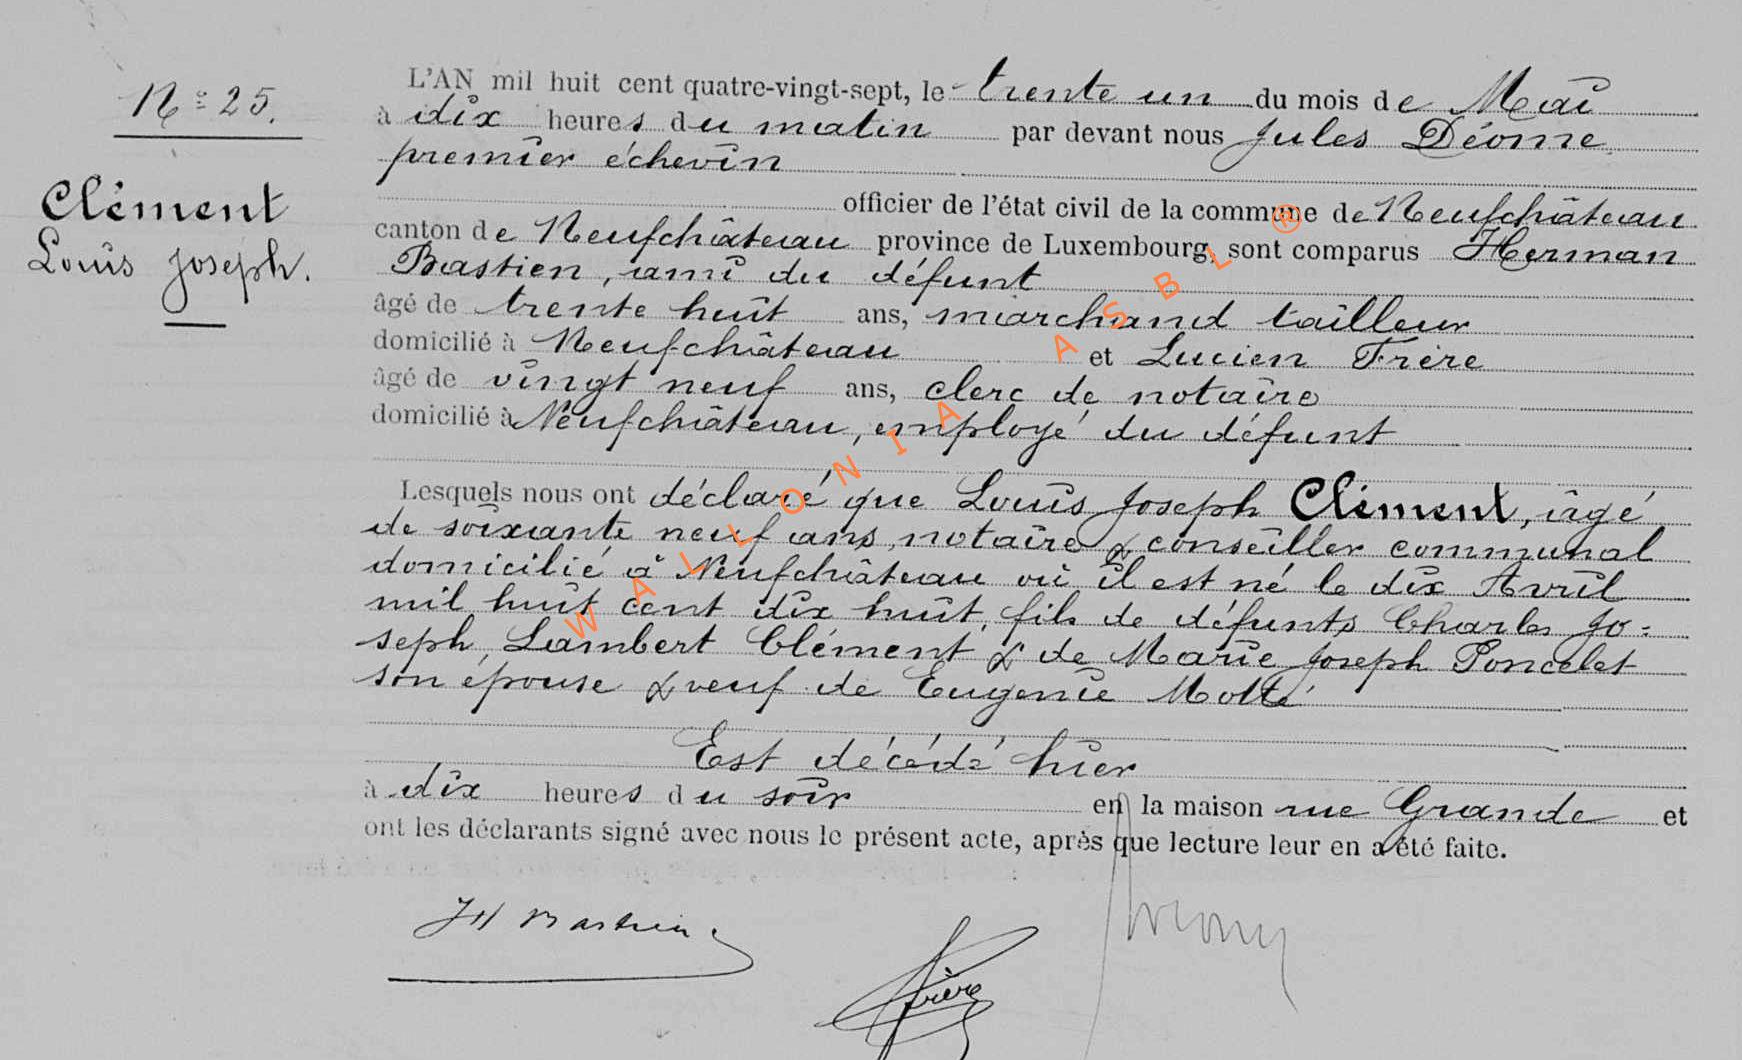 N° 25.
Clément
Louis Joseph.
L'AN mil huit cent quatre-vingt-sept, le trente un du mois de Mai
à dix heures du matin par devant nous Jules Déome
premier échevin
officier de l'état civil de la commune de Neufchâteau
canton de Neufchâteau province de Luxembourg, sont comparus Herman
Bastien, ami du défunt
âgé de trente huit ans, marchand tailleur
domicilié à Neufchâteau et Lucien Frère
âgé de vingt neuf ans, clerc de notaire
domicilié à Neufchâteau, employé du défunt
Lesquels nous ont déclaré que Louis Joseph Clément, âgé
de soixante neuf ans, notaire & conseiller communal
domicilié à Neufchâteau où il est né le dix Avril
mil huit cent dix huit, fils de défunts Charles Jo=
seph, Lambert Clément & de Marie Joseph Poncelet
son épouse & veuf de Eugenie Motté
Est décédé hier
à dix heures du soir en la maison rue Grande et
ont les déclarants signé avec nous le présent acte, après que lecture leur en a été faite.
JH Bastien
Frère
WALLONIA ASBL ®